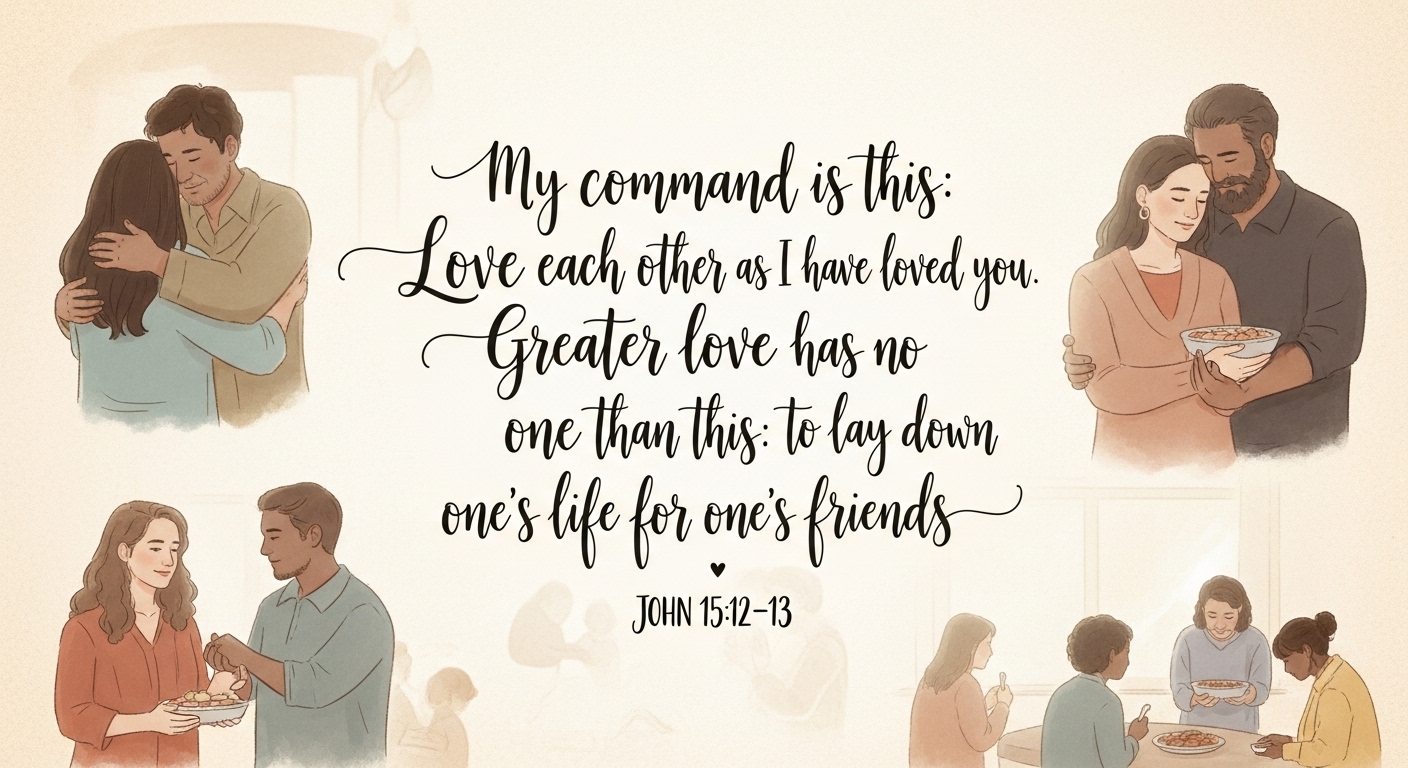 My command is this:
Love each other as I have loved you.
Greater love has no
one than this: to lay down
one's life for one's friends
JOHN 15:12–13